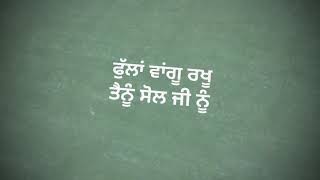 ਫੁੱਲਾਂ ਵਾਂਗੂ ਰਖੂ
ਤੈਨੂੰ ਸੋਲ ਜੀ ਨੂੰ